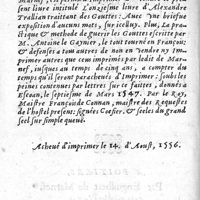 leur liure intitulé L'onziesme liure d'Alexandre
Trallian traittant des Gouttes: Auec vne briefue
exposition d'aucuns mots, sur iceluy. Plus, La pra-
ctique & methode de guerir les Gouttes escritte par
M. Antoine le Gaynier, le tout tourné en François;
& defenses à tous autres de non en vendre ny Impri-
mer autres que ceux imprimez par ledit de Mar-
nef, iusques au temps de cinq ans, à compter du
temps qu'ilz seront paracheués d'Imprimer: soubs les
peines contenues par lettres sur ce faittes, données à
Escouan, le septiesme de Mars 1547. Par le Roy,
Maistre Françoise de Connan, maistre des Requestes
de l'hostel present; signées Coesier. & seelés du grand
seel sur simple queuë.
Acheué d'imprimer le 14. d'Aoust, 1556.